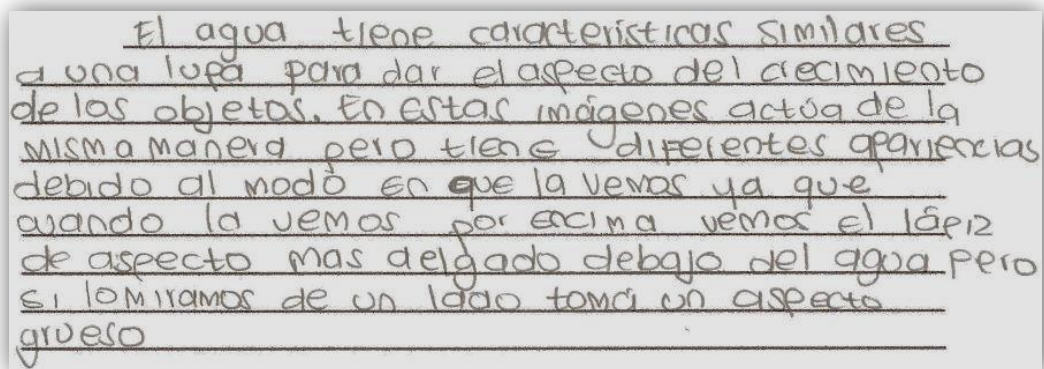 El agua tiene características similares
a una lupa para dar el aspecto del crecimiento
de los objetos. En Estas imágenes actúa de la
misma manera pero tiene diferentes apariencias
debido al modo en que la vemos ya que
cuando la vemos por encima vemos el lápiz
de aspecto mas delgado debajo del agua pero
si lo miramos de un lado toma un aspecto
grueso